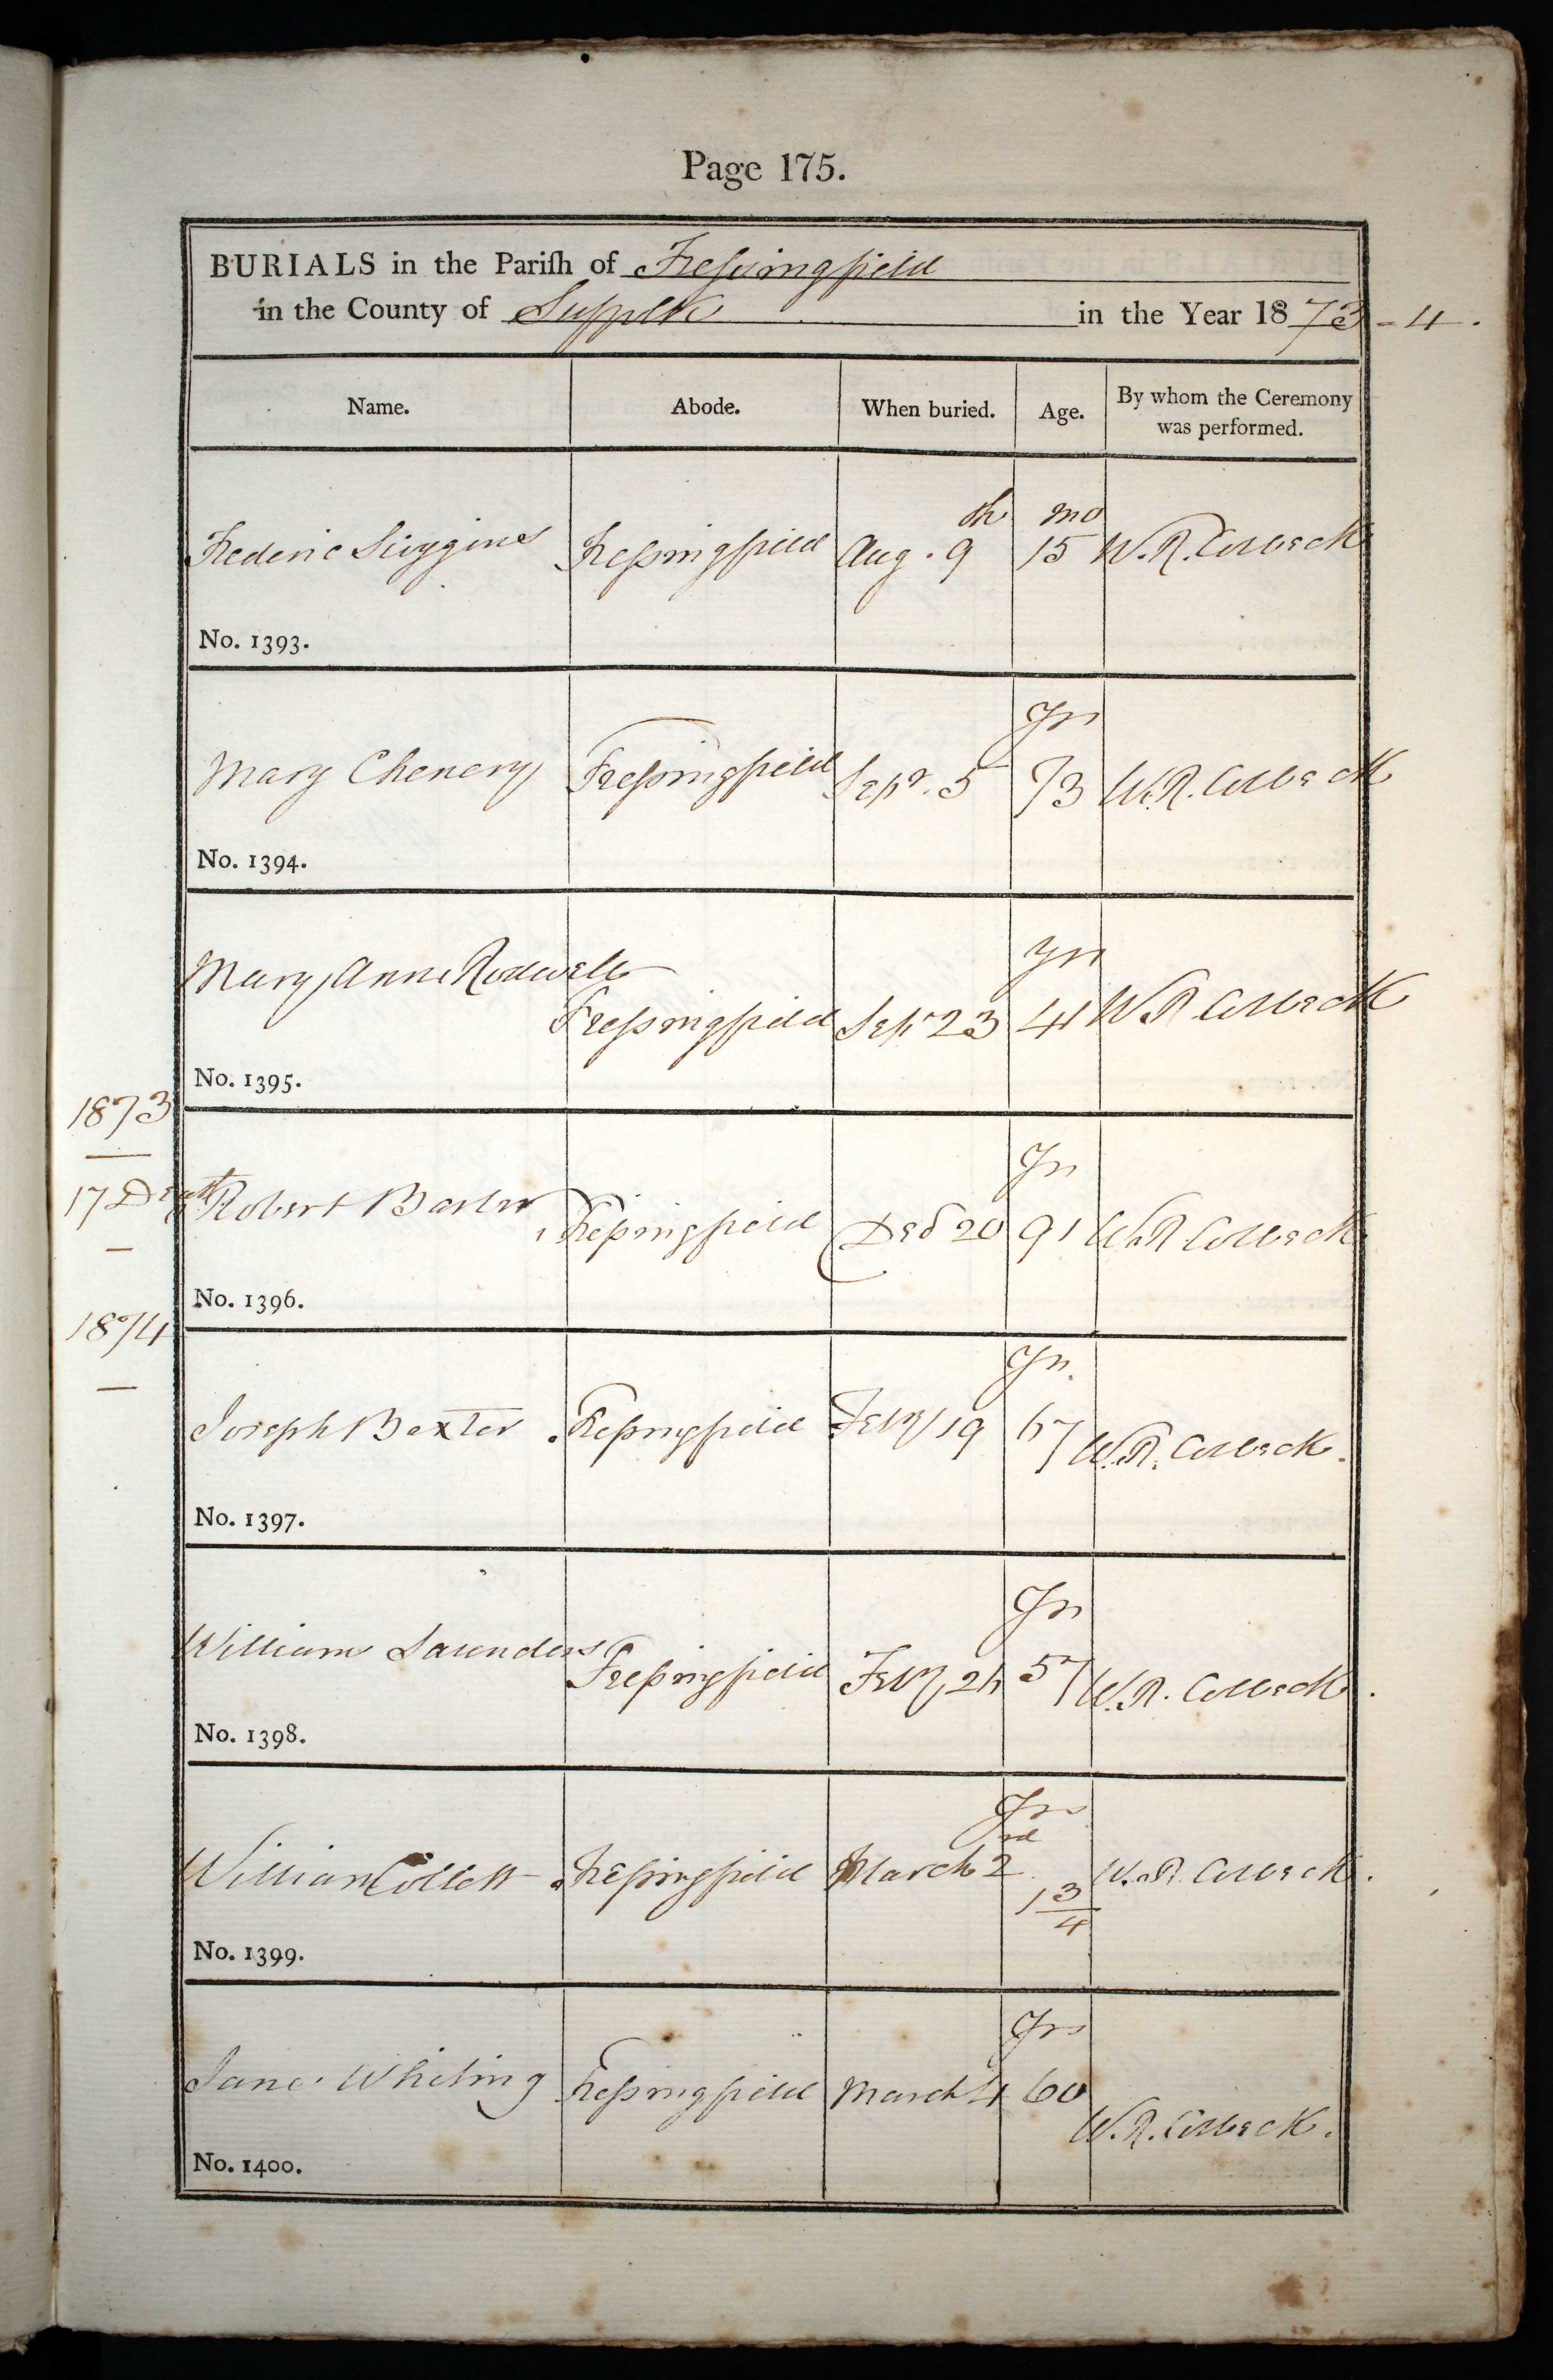 Page 175.
BURIALS in the Pariſh of Fressingfield
in the County of Suffolk in the Year 1873-4.
Name. Abode. When buried. Age. By whom the Ceremony
was performed.
th mo
Frederic Fressingfield Aug. 9 15 W. R. Colbeck
No. 1393.
Yrs
Mary Chenery Fressingfield Sepr. 5 73 W. R. Colbeck
No. 1394.
Mary Anne Rodwell Yrs
Fressingfield Sepr 23 41 W R Colbeck
No. 1395.
1873
Yrs
17 Robert Fressingfield Decr 20 91 W. R Colbeck
No. 1396.
1874
Yrs.
Joseph Baxter Fressingfield Feby 19 67 W. R. Colbeck.
No. 1397.
Yrs
William Saunders Fressingfield Feby 57 W. R. Colbeck.
No. 1398.
Yrs
William Collett Fressingfield March 2 1 3/4 W. R. Colbeck.
No. 1399.
Yrs
Jane Whiting Fressingfield March 4 60
W. R. Colbeck.
No. 1400.